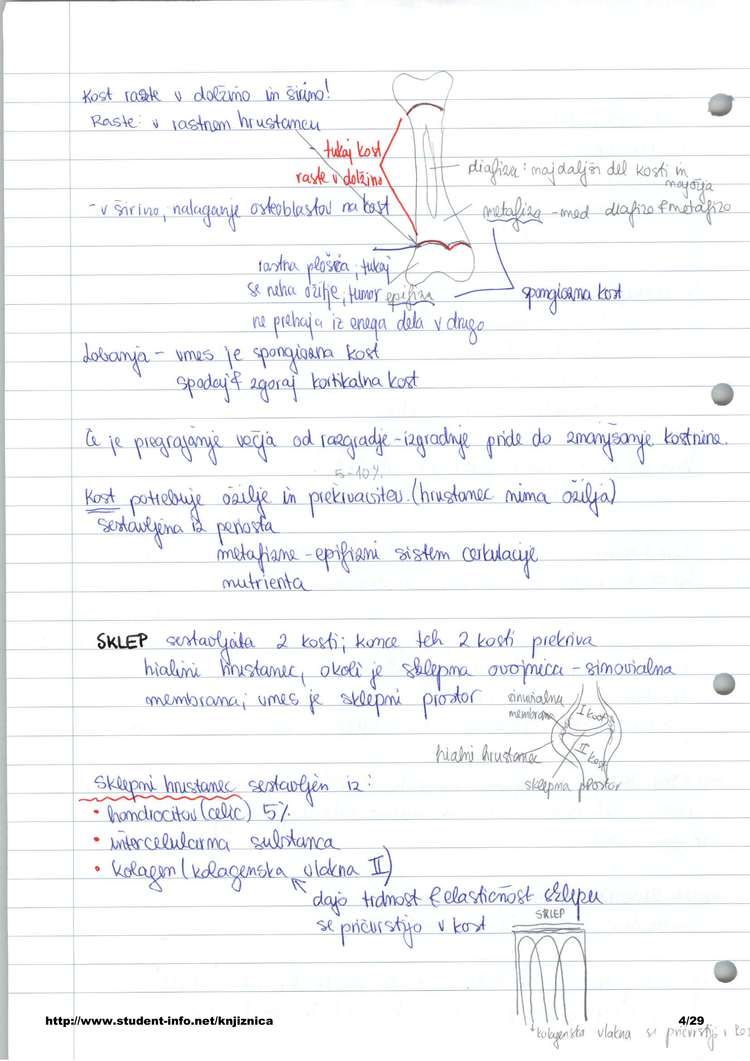 Kost raste v dolžino in širino!
Raste: v rastnem hrustancu
tukaj kost
raste v dolžino
diafiza: najdaljši del kosti in
najožja
- v širino, nalaganje osteoblastov na kost
metafiza - med diafizo & metafizo
rastna plošča; tukaj
se neha ožilje, tumor
epifiza
spongiozna kost
ne prehaja iz enega dela v drugo
Lobanja - vmes je spongiozna kost
spodaj & zgoraj kortikalna kost
Če je pregrajanje večja od razgradje - izgradnje pride do zmanjšanje kostnine.
5-10%
Kost potrebuje ožilje in prekrvavitev. (hrustanec nima ožilja)
Sestavljena iz periosta
metafizne - epifizni sistem cerkulacije
nutrienta
SKLEP sestavljata 2 kosti; konce teh 2 kosti prekriva
hialini hrustanec, okoli je sklepna ovojnica - sinovialna
membrana; vmes je sklepni prostor
sinovialna
membrana
I kost
II kost
hialni hrustanec
sklepna prostor
Sklepni hrustanec sestavljen iz:
• hondrocitov (celic) 5%
• intercelularna substanca
• kolagen (kolagenska vlakna II)
dajo trdnost & elastičnost sklepu
se pričvrstijo v kost
SKLEP
http://www.student-info.net/knjiznica
4/29
kolagenska vlakna se pričvrstijo v kos